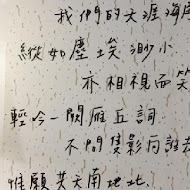 我們的天涯海
縱如塵埃渺小
亦相視而笑
輕吟一闕雁丘詞
不問隻影向誰去
惟願共天南地北